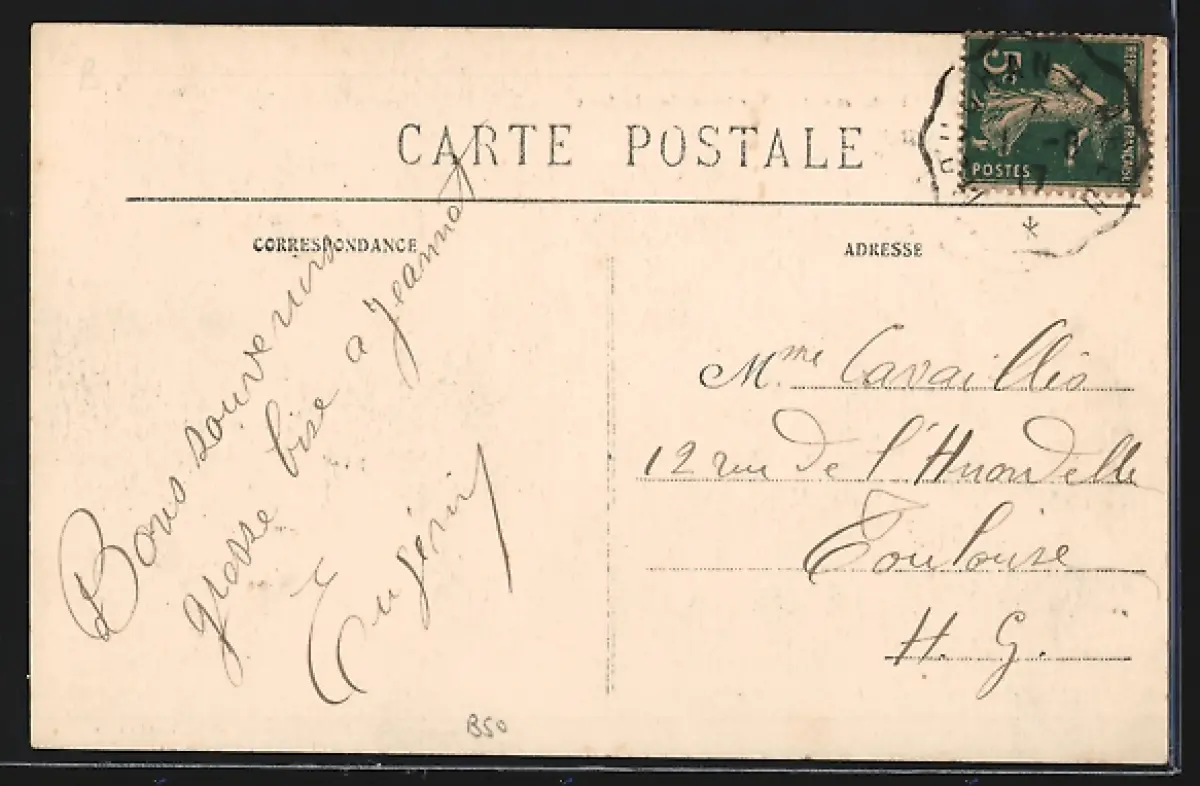 CARTE POSTALE
CORRESPONDANCE
Bons souvenirs
grosse bise a Jeannot
Eugénie
B50
5c
POSTES
17
ADRESSE
Mme Cavaillès
12 rue de
Toulouse
H. G.